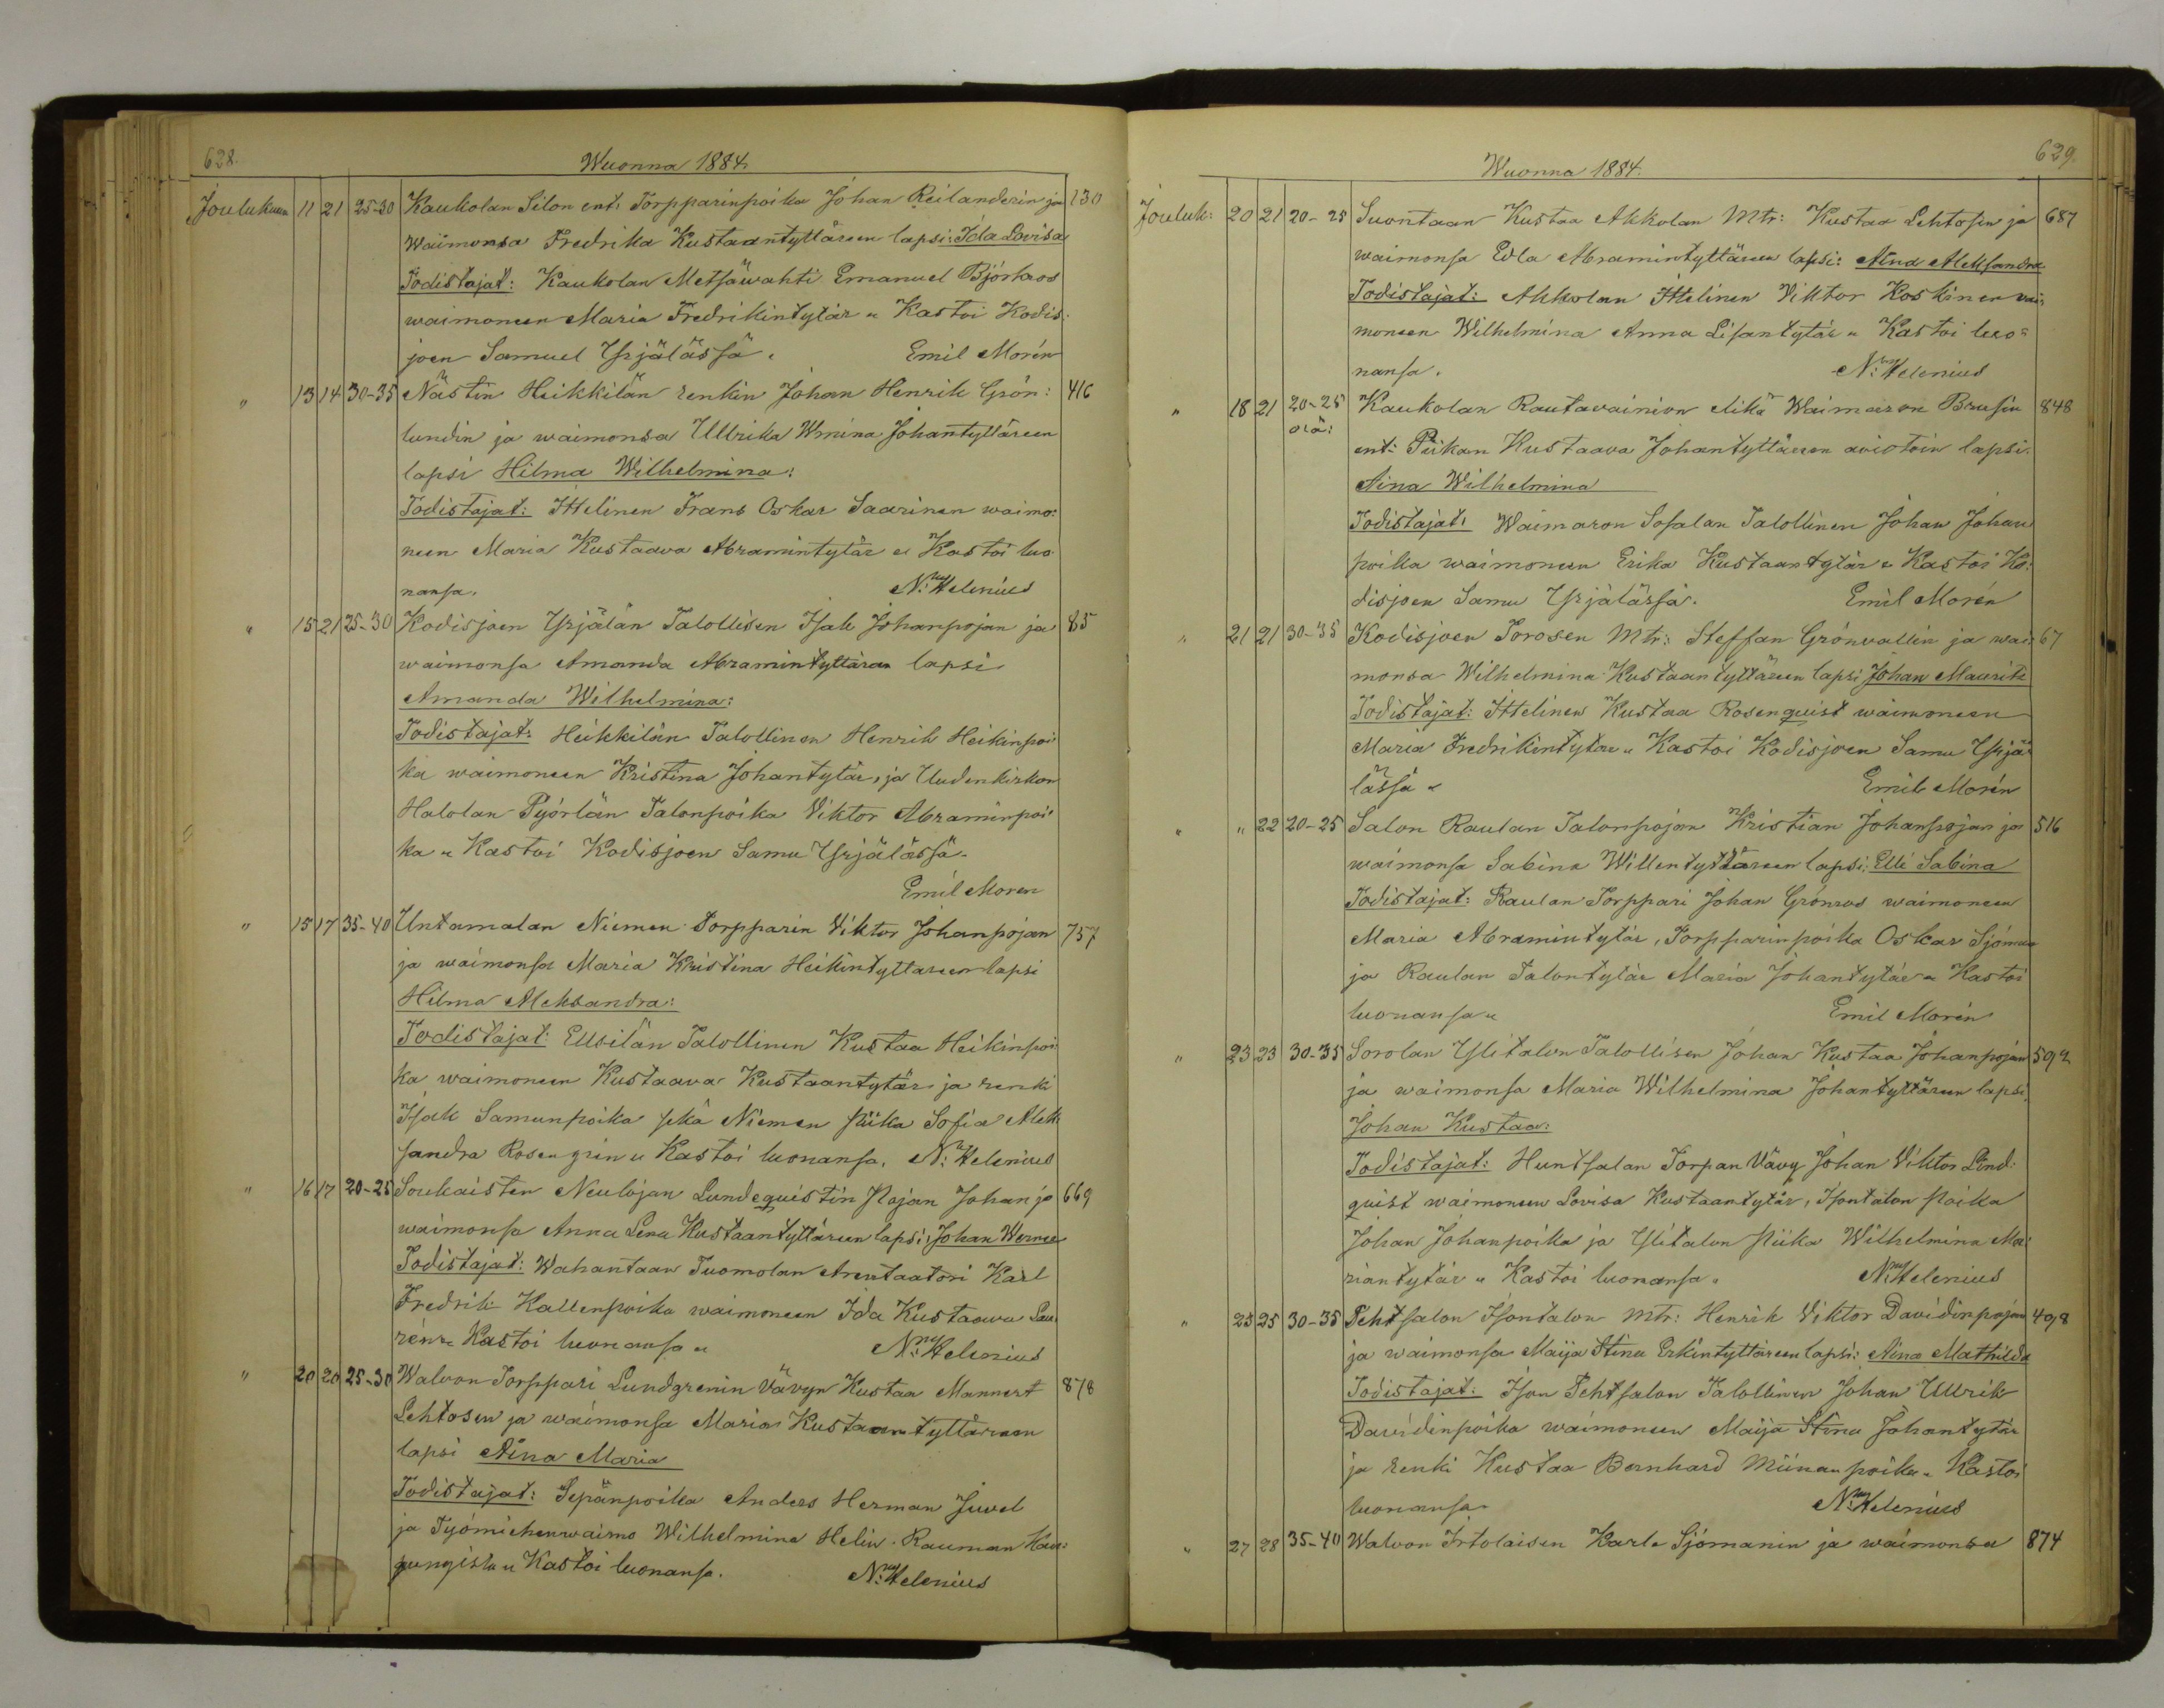 628.
Wuonna 1884.
Joulukuun 11 21 25-30 Kaukolan Silon ent: Torpparinpoika Johan Reilanderin ja 130
Waimonsa Fredrika Kustaantyttären lapsi: Ida Lovisa
Todistajat: Kaukolan Metsäwahti Emanuel Björkroos
waimoneen Maria Fredrikintytär „ Kastoi Kodis:
joen Samuel Yrjälässä. Emil Morén
„ 13 14 30-35 Nästin Heikkilän renkin Johan Henrik Grön: 416
lundin ja waimonsa Ullrika Wmina Johantyttäreen
lapsi Hilma Wilhelmina:
Todistajat: Ittelinen Frans Oskar Saarinen waimo:
neen Maria Kustaava Abramintytär „ Kastoi luo
nansa. N: Helenius
„ 15 21 25-30 Kodisjoen Yrjälän Talollisen Isak Johanpojan ja 85
waimonsa Amanda Abramintyttären lapsi
Amanda Wilhelmina:
Todistajat: Heikkilän Talollinen Henrik Heikinpoi
ka waimoneen Kristina Johantytär, ja Uudenkirkon
Halolan Pyörlän Talonpoika Viktor Abraminpoi
ka „ Kastoi Kodisjoen Samu Yrjälässä.
Emil Moren
„ 15 17 35-40 Untamalan Niemen Torpparin Viktor Johanpojan 757
ja waimonsa Maria Kristina Heikintyttareen lapsi
Hilma Aleksandra:
Todistajat: Eusilän Talollinen Kustaa Heikinpoi
ka waimoneen Kustaava Kustaantytär ja renki
Isak Samunpoika sekä Niemen piika Sofia Alek:
sandra Rosengrin „ Kastoi luonansa. N: Helenius
„ 16 17 20-25 Soukaisten Neulojan Lundequistin Pojan Johan ja 669
waimonsa Anna Lena Kustaantyttäreen lapsi: Johan Werner
Todistajat: Wahantaan Tuomolan Arentaatori Karl
Fredrik Kallenpoika waimoneen Ida Kustaava Lau
rén „ Kastoi luonansa „ N: Helenius
„ 20 20 25-30 Walvon Torppari Lundgrenin Vävyn Kustaa Mannert 878
Lehtosen ja waimonsa Maria Kustaantyttäreen
lapsi Aina Maria
Todistajat: Sepänpoika Anders Herman Juvel
ja Työmiehenwaimo Wilhelmina Helin. Rauman Kau:
pungista „ Kastoi luonansa. N: Helenius
629.
Wuonna 1884.
Jouluk: 20 21 20-25 Suontaan Kustaa Akkolan Mtr: Kustaa Lehtosen ja 687
waimonsa Edla Abramintyttäreen lapsi: Aina Aleksandra
Todistajat: Akkolan Ittelinen Viktor Koskinen wai:
moneen Wilhelmina Anna Lisantytär „ Kastoi luo=
nansa. N: Helenius
„ 18 21 20-25 Kaukolan Rautavainion Aikä Waimaron Brusin 848
ent: Piikan Kustaava Johantyttäreen aviotoin lapsi.
Aina Wilhelmina
Todistajat: Waimaron Sosalan Talollinen Johan Johan
poika waimoneen Erika Kustaantytär „ Kastoi Ko:
disjoen Samu Yrjälässä. Emil Morén
„ 21 21 30-35 Kodisjoen Torosen Mtr: Steffan Grönvallin ja wai: 67
monsa Wilhelmina Kustaantyttäreen lapsi Johan Maurits
Todistajat: Ittelinen Kustaa Rosenquist waimoneen
Maria Fredrikintytär „ Kastoi Kodisjoen Samu Yrjä
lässä „ Emil Morén
„ „ 22 20-25 Salon Raulan Talonpojan Kristian Johanpojan ja 516
waimonsa Sabina Willentyttäreen lapsi: Elli Sabina
Todistajat: Raulan Torppari Johan Grönroos waimoneen
Maria Abramintytär, Torpparinpoika Oskar Sjöman
ja Raulan Talontytär Maria Johantytär „ Kastoi
luonansa „ Emil Morén
„ 23 23 30-35 Sorolan Ylitalon Talollisen Johan Kustaa Johanpojan 592
ja waimonsa Maria Wilhelmina Johantyttäreen lapsi.
Johan Kustaa:
Todistajat: Huntsalan Torpan Vävy Johan Viktor Lind:
quist waimoneen Lovisa Kustaantytär, Isontalon Poika
Johan Johanpoika ja Ylitalon Piika Wilhelmina Ma:
riantytär „ Kastoi luonansa „ N: Helenius
„ 23 25 30-35 Pehtsalon Isontalon Mtr: Henrik Viktor Davidinpojan 498
ja waimonsa Maija Stina Erkintyttäreen lapsi: Aina Mathilda
Todistajat: Ison Pehtsalon Talollinen Johan Ullrik
Davidinpoika waimoneen Maija Stina Johantytär
ja renki Kustaa Bernhard Miinanpoika. Kastoi
luonansa. N: Helenius
„ 27 28 35-40 Walvon Irtolaisen Karle Sjömanin ja waimonsa 874